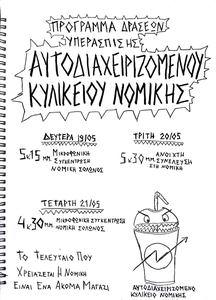 ΠΡΟΓΡΑΜΜΑ ΔΡΑΣΕΩΝ
ΥΠΕΡΑΣΠΙΣΗΣ
ΑΥΤΟΔΙΑΧΕΙΡΙΖΟΜΕΝΟΥ
ΚΥΛΙΚΕΙΟΥ ΝΟΜΙΚΗΣ
ΔΕΥΤΕΡΑ 19/05
5:15 ΜΜ ΜΙΚΡΟΦΩΝΙΚΗ
ΣΥΓΚΕΝΤΡΩΣΗ
ΝΟΜΙΚΗ ΣΟΛΩΝΟΣ
ΤΡΙΤΗ 20/05
5:30 ΜΜ ΑΝΟΙΧΤΗ
ΣΥΝΕΛΕΥΣΗ
ΣΤΗ ΝΟΜΙΚΗ
ΤΕΤΑΡΤΗ 21/05
4:30 ΜΜ ΜΙΚΡΟΦΩΝΙΚΗ ΣΥΓΚΕΝΤΡΩΣΗ
ΝΟΜΙΚΗ ΣΟΛΩΝΟΣ
ΤΟ ΤΕΛΕΥΤΑΙΟ ΠΟΥ
ΧΡΕΙΑΖΕΤΑΙ Η ΝΟΜΙΚΗ
ΕΙΝΑΙ ΕΝΑ ΑΚΟΜΑ ΜΑΓΑΖΙ
ΑΥΤΟΔΙΑΧΕΙΡΙΖΟΜΕΝΟ
ΚΥΛΙΚΕΙΟ ΝΟΜΙΚΗΣ